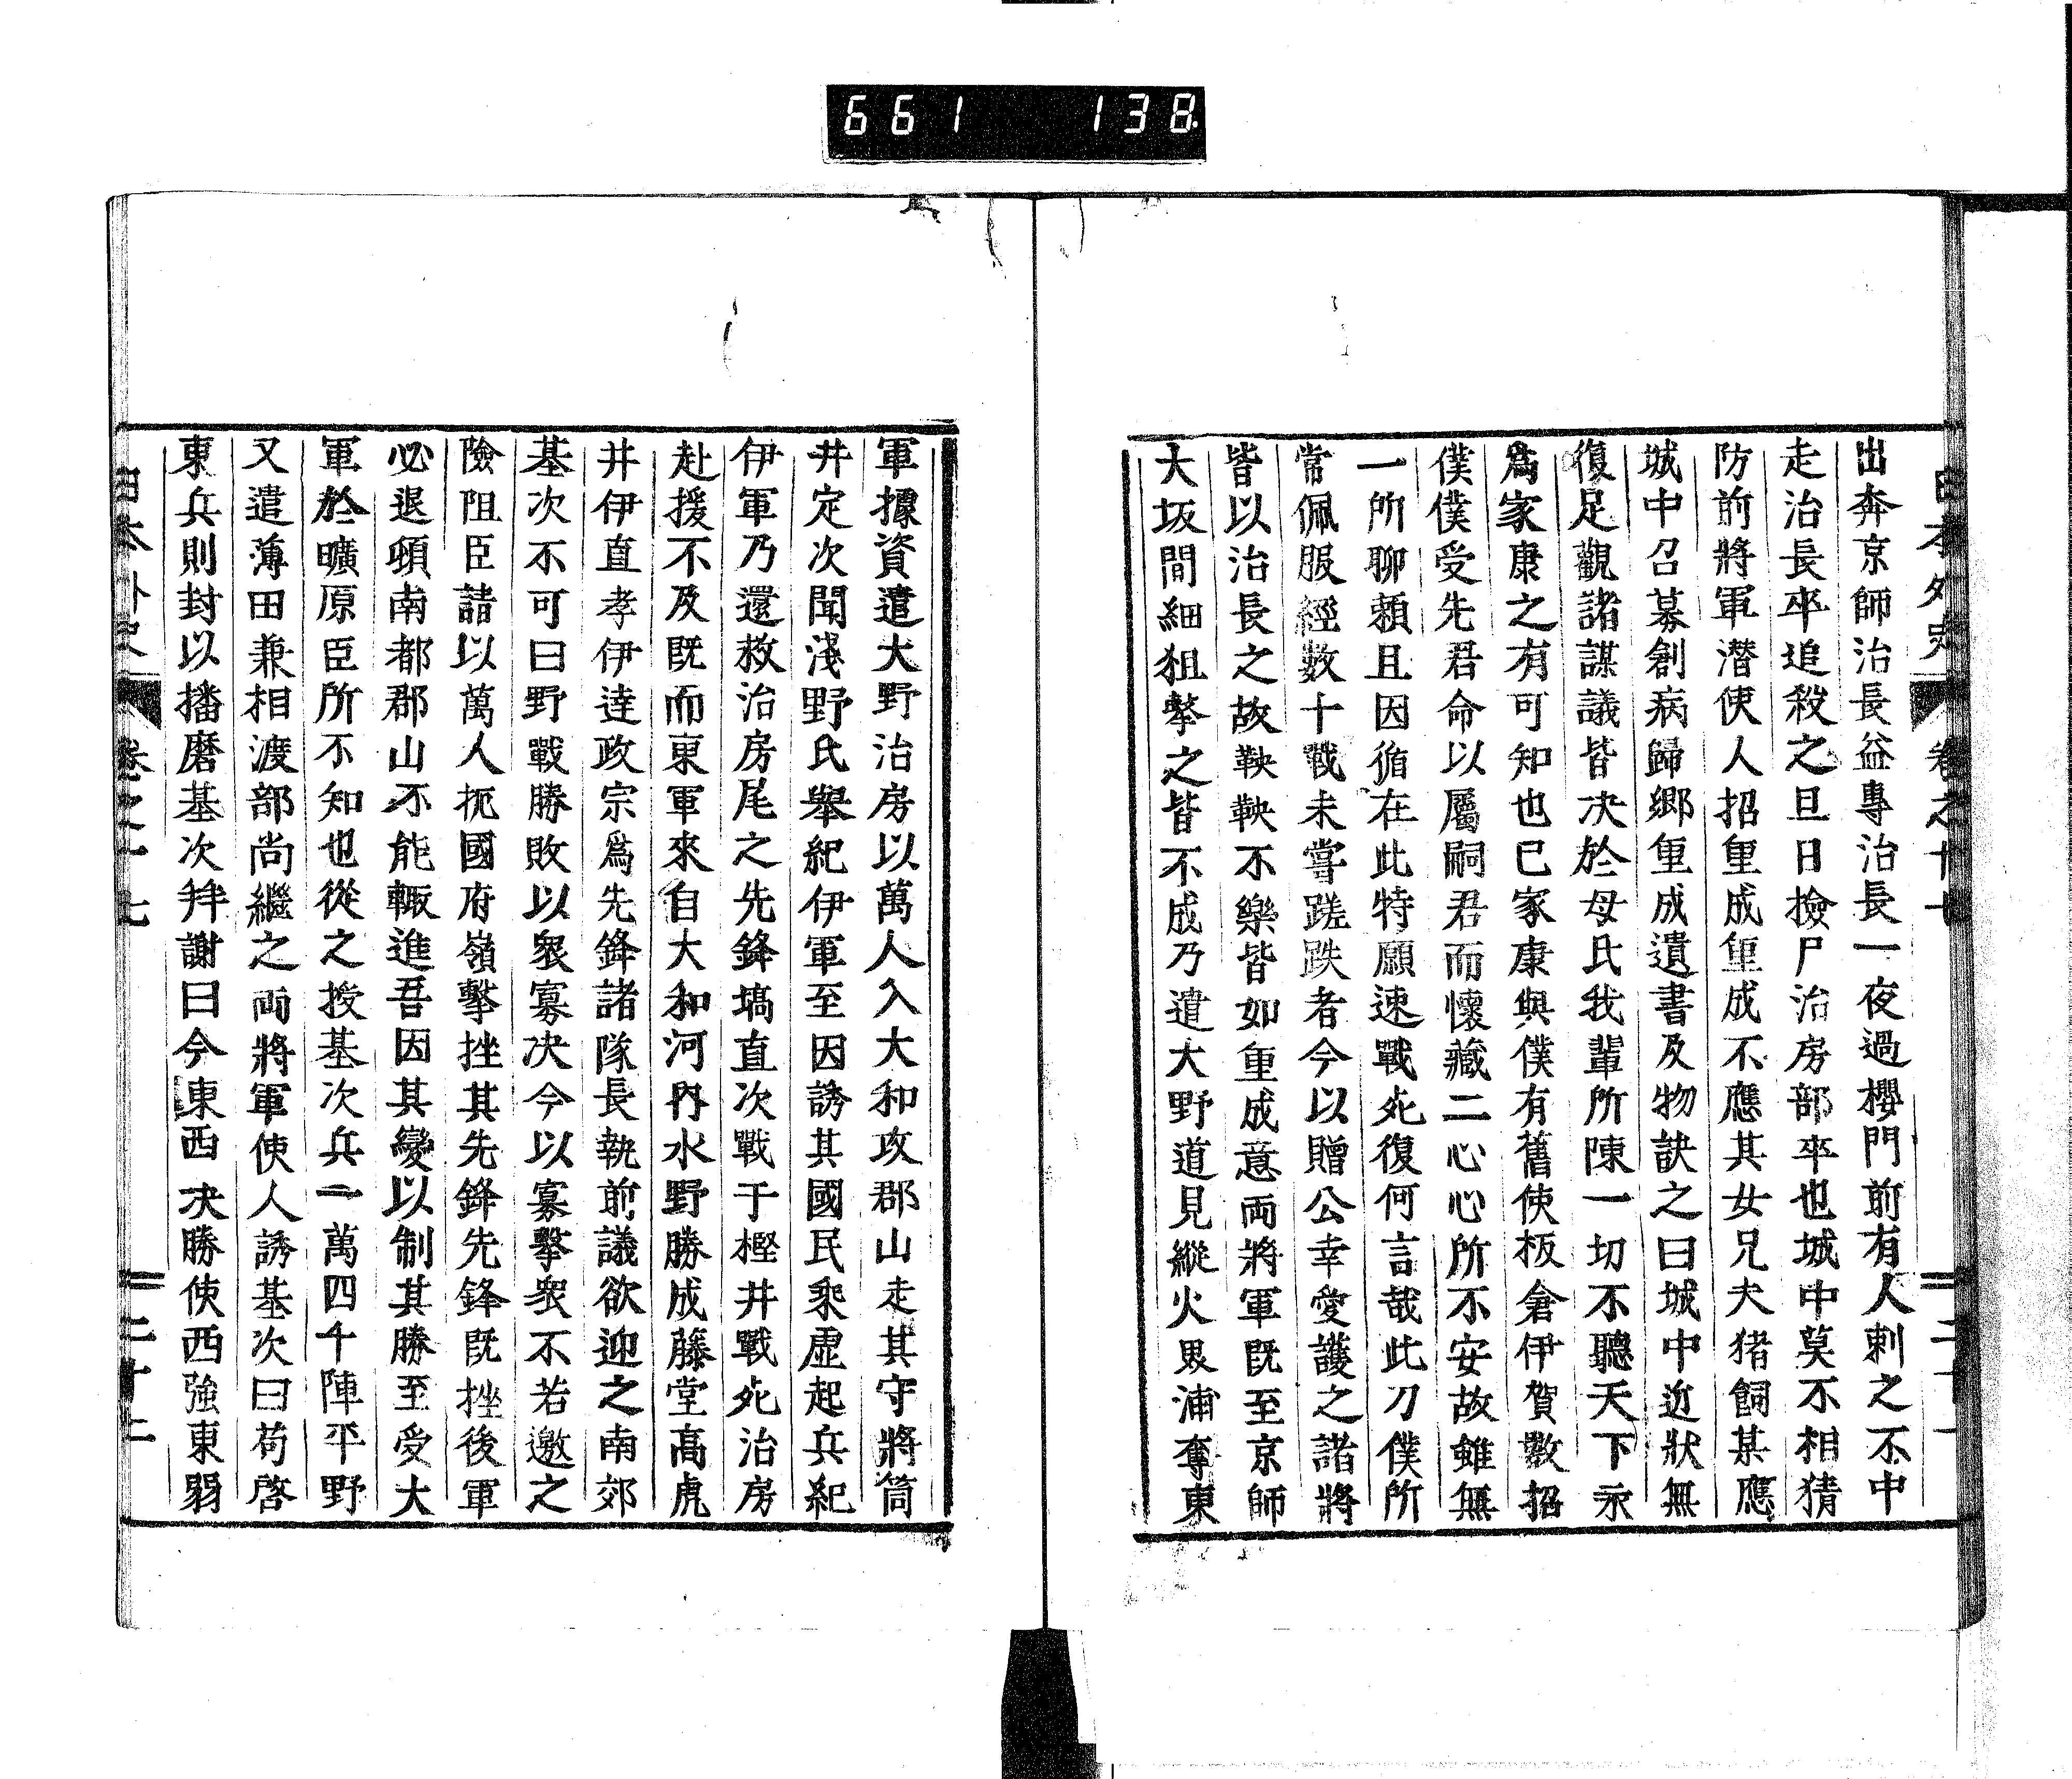 661 138
日本外史 卷之十七 二十一
出奔京師治長益專治長一夜過櫻門前有人刺之不中
走治長卒追殺之旦日撿尸治房部卒也城中莫不相猜
防前將軍潛使人招重成重成不應其女兄夫猪飼某應
城中召募創病歸鄉重成遺書及物訣之曰城中近狀無
復足觀諸謀議皆决於母氏我輩所陳一切不聽天下永
爲家康之有可知也已家康與僕有舊使板倉伊賀數招
僕僕受先君命以屬嗣君而懷藏二心心所不安故雖無
一所聊賴且因循在此特願速戰死復何言哉此刀僕所
常佩服經數十戰未嘗蹉跌者今以贈公幸愛護之諸將
皆以治長之故鞅鞅不樂皆如重成意両將軍既至京師
大坂間細狙擊之皆不成乃遣大野道見縱火界浦奪東
軍據資遣大野治房以萬人入大和攻郡山走其守將筒
井定次聞淺野氏舉紀伊軍至因誘其國民乘虛起兵紀
伊軍乃還救治房尾之先鋒塙直次戰于樫井戰死治房
赴援不及既而東軍來自大和河內水野勝成藤堂高虎
井伊直孝伊達政宗爲先鋒諸隊長執前議欲迎之南郊
基次不可曰野戰勝敗以衆寡决今以寡擊衆不若邀之
險阻臣請以萬人扼國府嶺擊挫其先鋒先鋒既挫後軍
必退頓南都郡山不能輙進吾因其變以制其勝至受大
軍於曠原臣所不知也從之授基次兵一萬四千陣平野
又遣薄田兼相渡部尚繼之両將軍使人誘基次曰苟啓
東兵則封以播磨基次拜謝曰今東西决勝使西強東弱
日本外史 卷之十七 二十二